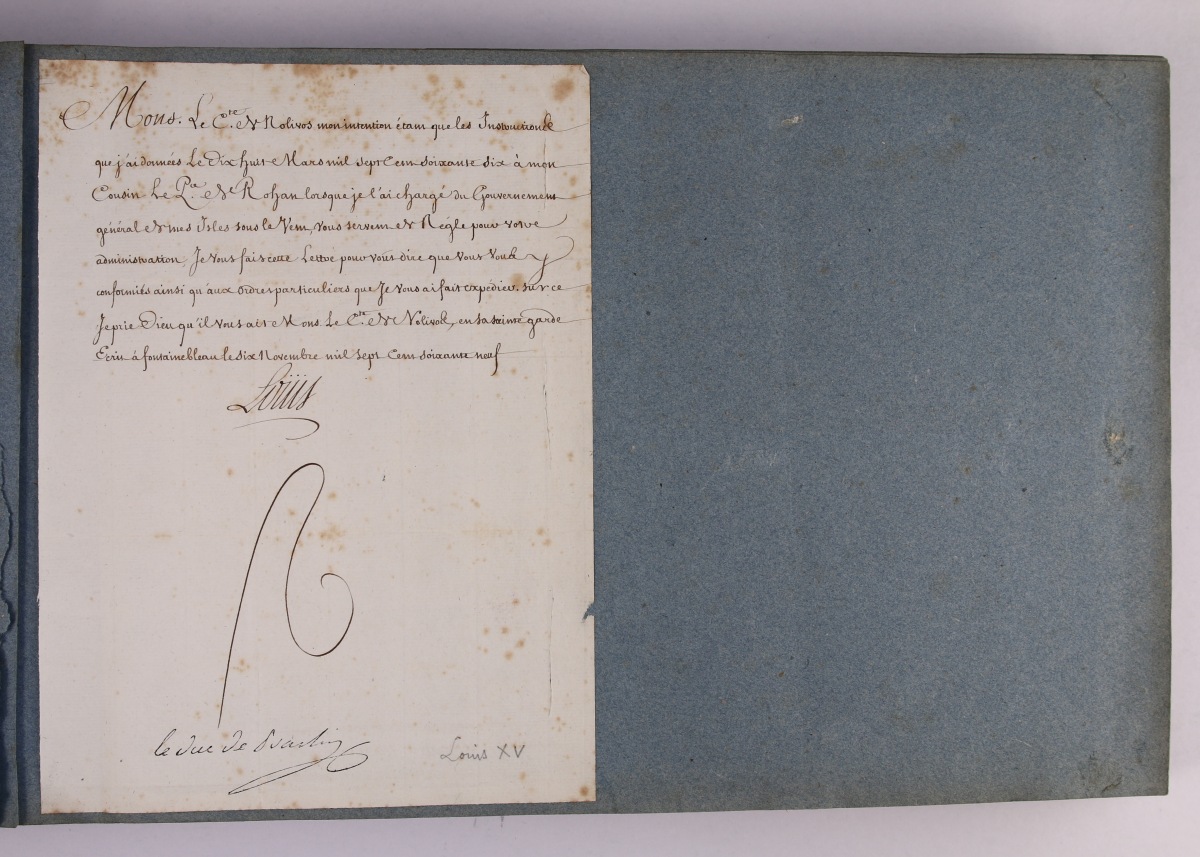 Mons. Le Cte. de Nolivos mon intention étant que les Instructions
que j'ai données le dix huit Mars mil sept Cent soixante six à mon
Cousin Le Pce. de Rohan lorsque je l'ai chargé du Gouvernement
général de mes Isles sous le Vent, vous servent de Regle pour votre
administration, Je vous fais cette Lettre pour vous dire que vous vous y
conformiés ainsi qu'aux ordres particuliers que Je vous ai fait expédier. sur ce
Je prie Dieu qu'il vous ait Mons. Le Cte. de Nolivos, en sa sainte garde
Ecrit à fontainebleau le six Novembre mil sept Cent soixante neuf
Loüis
le duc de Praslin
Louis XV